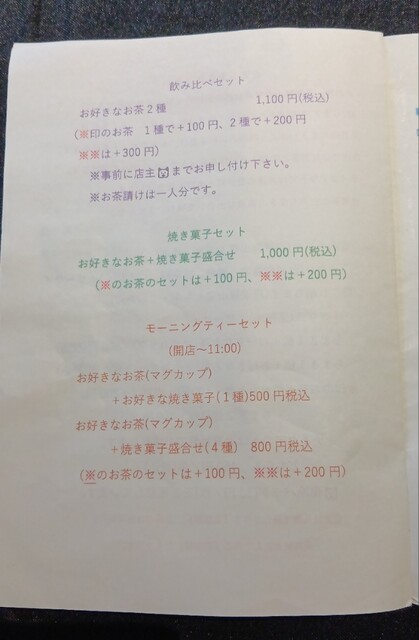 飲み比べセット
お好きなお茶２種 1,100円(税込)
(※印のお茶 1種で＋100円、2種で＋200円
※※は＋300円)
※事前に店主までお申し付け下さい。
※お茶請けは一人分です。
焼き菓子セット
お好きなお茶＋焼き菓子盛合せ 1,000円(税込)
(※のお茶のセットは＋100円、※※は＋200円)
モーニングティーセット
(開店～11:00)
お好きなお茶(マグカップ)
＋お好きな焼き菓子(１種)500円税込
お好きなお茶(マグカップ)
＋焼き菓子盛合せ(４種) 800円税込
(※のお茶のセットは＋100円、※※は＋200円)